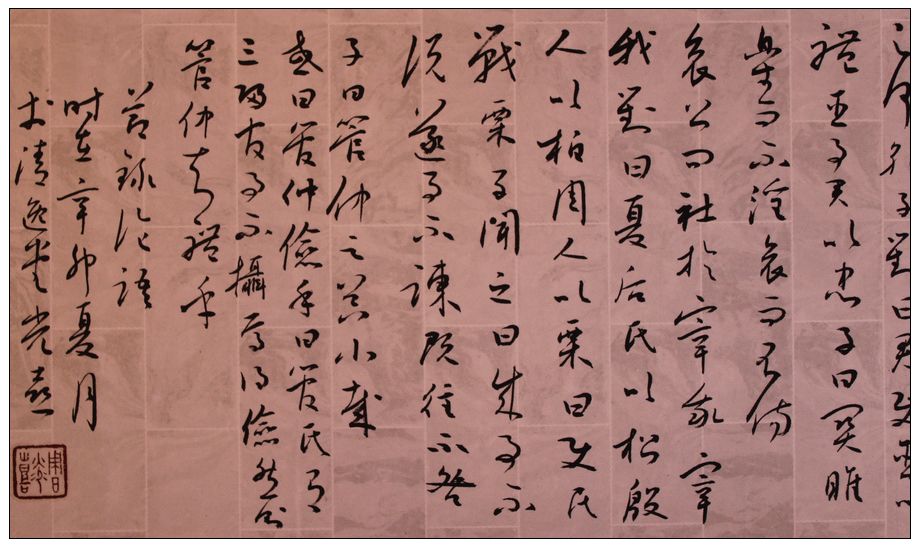 之何孔子對曰君使臣以
禮臣事君以忠子曰關雎
樂而不淫哀而不傷
哀公問社於宰我宰
我對曰夏后氏以松殷
人以柏周人以栗曰使民
戰栗子聞之曰成事不
說遂事不諫既往不咎
子曰管仲之器小哉
或曰管仲儉乎曰管氏有
三歸官事不攝焉得儉然則
管仲知禮乎
節錄論語
時在辛卯夏月
於清逸堂